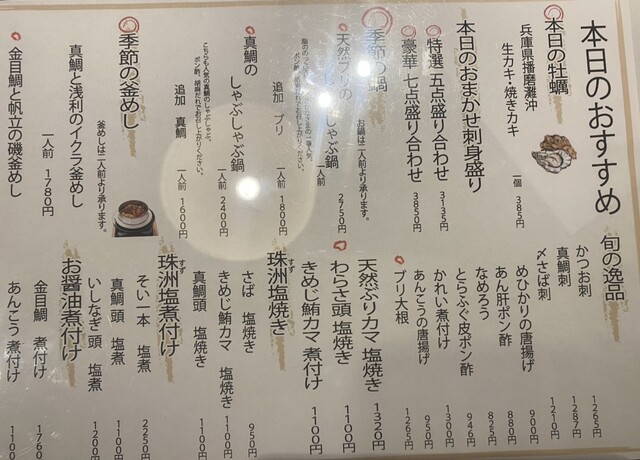 本日のおすすめ
本日の牡蠣
兵庫県播磨灘沖
生カキ・焼きカキ 一個 385円
本日のおまかせ刺身盛り
特選 五点盛り合わせ 3135円
豪華 七点盛り合わせ 3850円
季節の鍋
お鍋は二人前より承ります。
天然ブリの
しゃぶしゃぶ鍋 一人前 2750円
追加 ブリ 一人前 1800円
真鯛の
しゃぶしゃぶ鍋 一人前 2400円
こちらも人気の真鯛のしゃぶしゃぶ。
ポン酢、胡麻だれでお召し上がりください。
追加 真鯛 一人前 1600円
季節の釜めし
釜めしは二人前より承ります。
真鯛と浅利のイクラ釜めし
一人前 1780円
金目鯛と帆立の磯釜めし
旬の逸品
かつお刺 1265円
真鯛刺 1287円
〆さば刺 1210円
めひかりの唐揚げ 900円
あん肝ポン酢 880円
なめろう 825円
とらふぐ皮ポン酢 946円
かれい煮付け 1300円
あんこうの唐揚げ 950円
ブリ大根 1265円
天然ぶりカマ 塩焼き 1320円
わらさ頭 塩焼き 1100円
きめじ鮪カマ 煮付け 1100円
珠洲塩焼き
すず
さば 塩焼き 950円
きめじ鮪カマ 塩焼き 1100円
真鯛頭 塩焼き 1100円
珠洲塩煮付け
すず
そい一本 塩煮 2250円
真鯛頭 塩煮 1100円
いしなぎ頭 塩煮 1200円
お醤油煮付け
金目鯛 煮付け 1760
あんこう 煮付け 1100